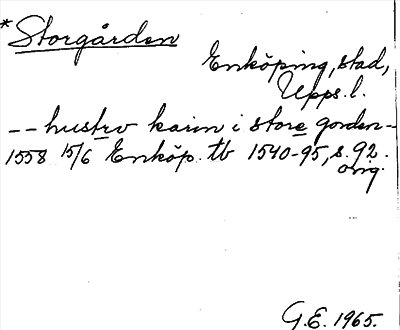 *Storgården
Enköping, stad,
Upps. l.
-- hustrv karin i store gorden --
1558 15/6 Enköp. tb 1540-95, s. 92.
orig.
G.E. 1965.